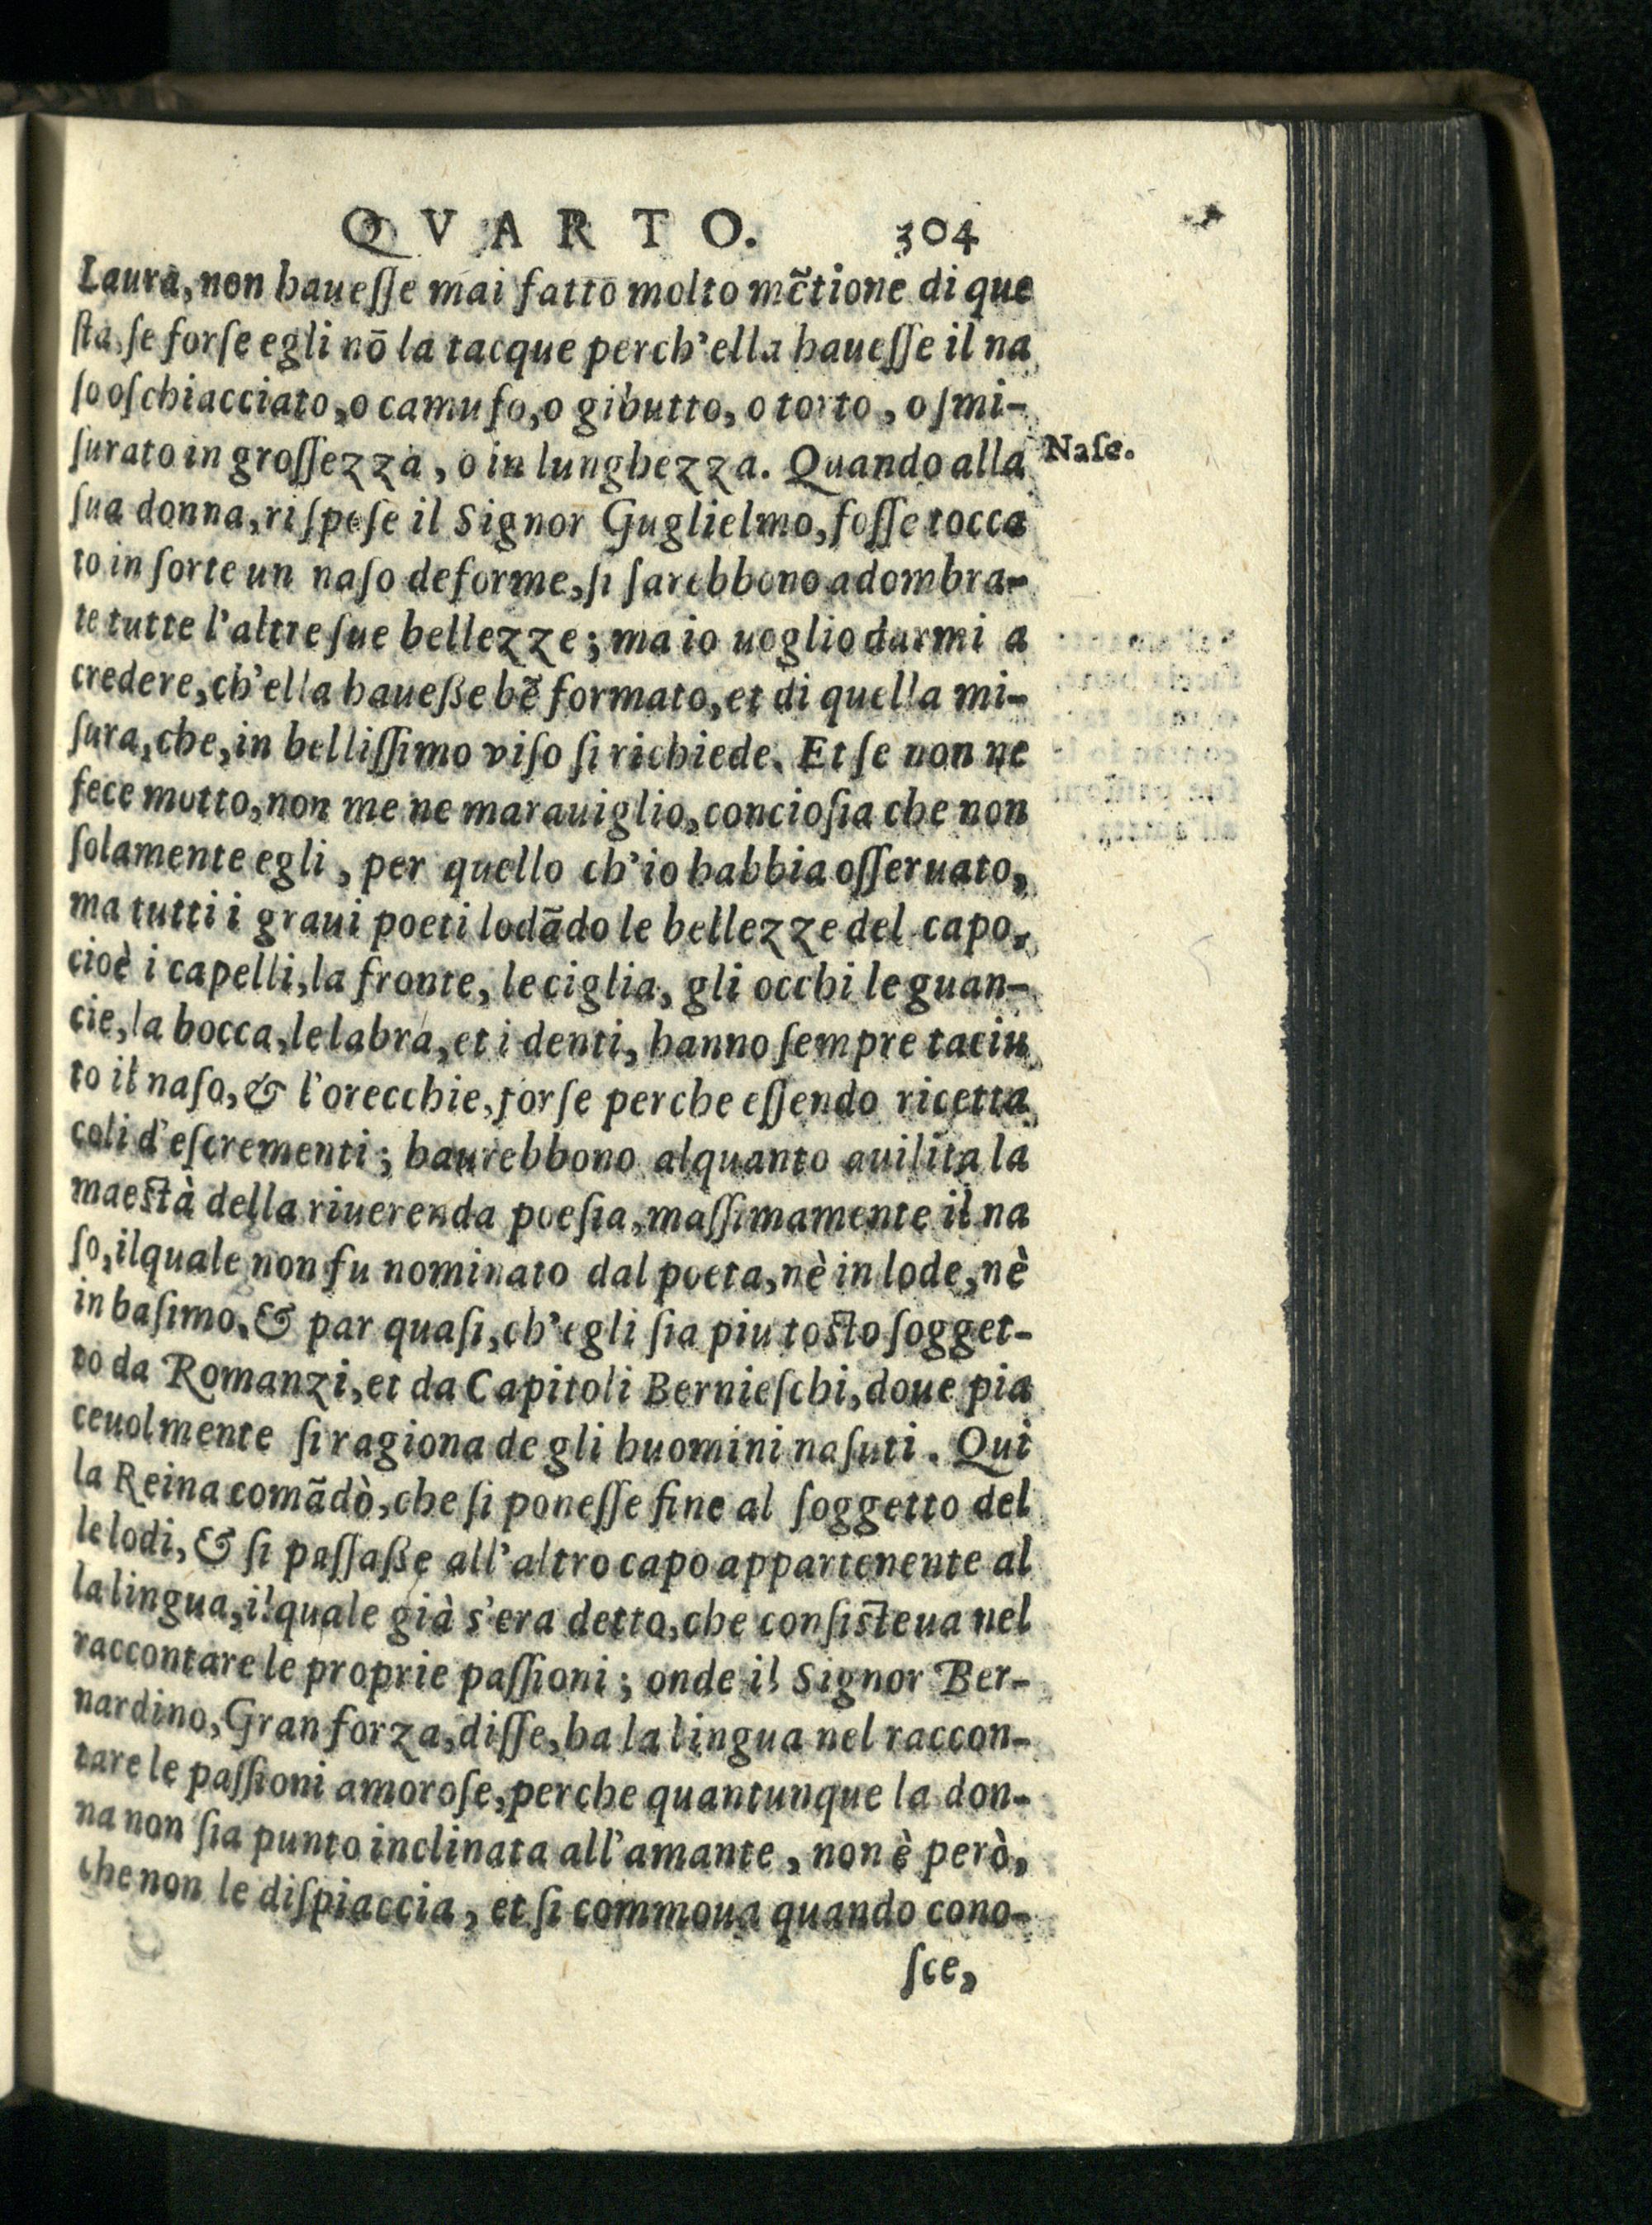 QVARTO. 304
Laura, non haueſſe mai fatto molto mẽtione di que
ſta, ſe forſe egli nõ la tacque perch'ella haueſſe il na
ſo o ſchiacciato, o camuſo, o gibutto, o torto, o ſmi-
ſurato in groſſezza, o in lunghezza. Quando alla
Naſo.
ſua donna, riſpoſe il Signor Guglielmo, foſſe tocca
to in ſorte un naſo deforme, ſi ſarebbono adombra-
te tutte l'altre ſue bellezze; ma io uoglio darmi a
credere, ch'ella haueße bẽ formato, et di quella mi-
ſura, che, in belliſſimo viſo ſi richiede. Et ſe non ne
fece motto, non me ne marauiglio, concioſia che non
ſolamente egli, per quello ch'io habbia oſſeruato,
ma tutti i graui poeti lodãdo le bellezze del capo,
cioè i capelli, la fronte, le ciglia, gli occhi le guan-
cie, la bocca, le labra, et i denti, hanno ſempre taciu
to il naſo, & l'orecchie, forſe perche eſſendo ricetta
coli d'eſcrementi; haurebbono alquanto auilita la
maeſtà della riuerenda poeſia, maſſimamente il na
ſo, ilquale non fu nominato dal poeta, nè in lode, nè
in baſimo, & par quaſi, ch'egli ſia piu toſto ſogget-
to da Romanzi, et da Capitoli Bernieſchi, doue pia
ceuolmente ſi ragiona de gli huomini naſuti. Qui
la Reina comãdò, che ſi poneſſe fine al ſoggetto del
le lodi, & ſi paſſaße all'altro capo appartenente al
la lingua, ilquale già s'era detto, che conſiſteua nel
raccontare le proprie paſſioni; onde il Signor Ber-
nardino, Gran forza, diſſe, ha la lingua nel raccon-
tare le paſſioni amoroſe, perche quantunque la don-
na non ſia punto inclinata all'amante, non è però,
che non le diſpiaccia, et ſi commoua quando cono-
ſce,